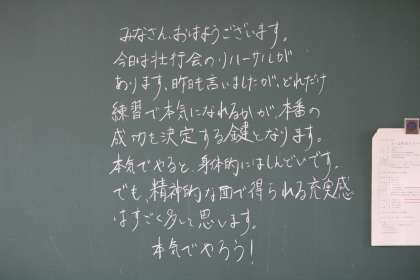 みなさん、おはようございます。
今日は壮行会のリハーサルが
あります。昨日も言いましたが、どれだけ
練習で本気になれるかが、本番の
成功を決定する鍵となります。
本気でやると、身体的にはしんどいです。
でも、精神的な面で得られる充実感
はすごく多いと思います。
本気でやろう!